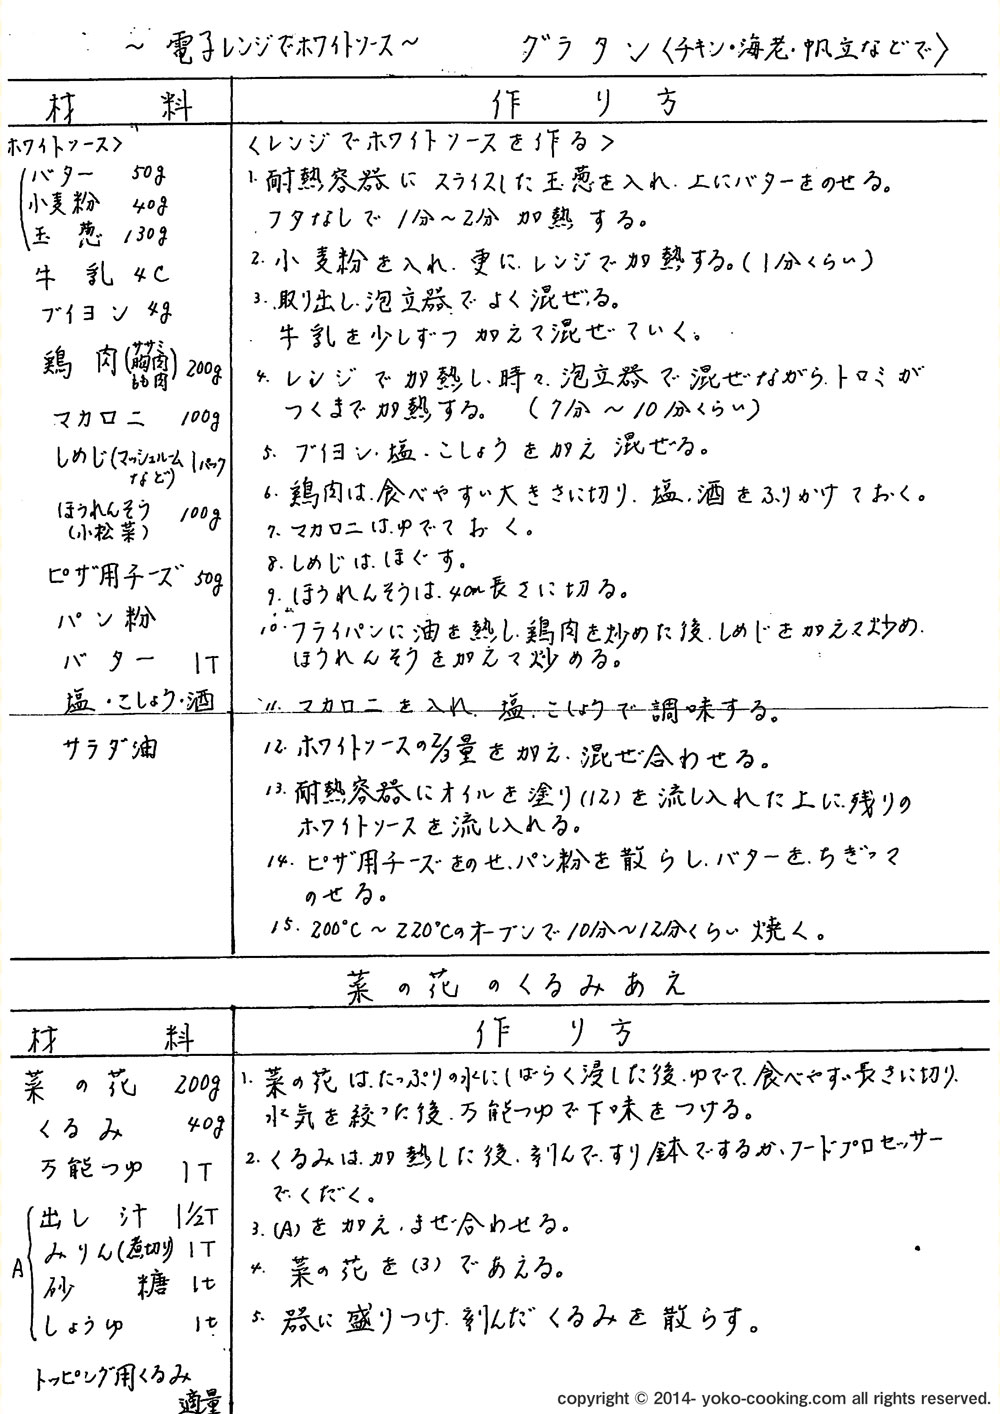 ～ 電子レンジでホワイトソース～ グラタン〈チキン・海老・帆立などで〉
材 料 作 り 方
ホワイトソース〉
バター 50g
小麦粉 40g
玉 葱 130g
牛 乳 4C
ブイヨン 4g
鶏 肉(ササミ 胸肉 もも肉) 200g
マカロニ 100g
しめじ(マッシュルームなど) 1パック
ほうれんそう 100g
(小松菜)
ピザ用チーズ 50g
パン粉
バター 1T
塩・こしょう・酒
サラダ油
〈レンジでホワイトソースを作る〉
1. 耐熱容器に スライスした玉葱を入れ、上にバターをのせる。
フタなしで 1分～2分 加熱する。
2. 小麦粉を入れ、更に、レンジで加熱する。(1分くらい)
3. 取り出し、泡立器でよく混ぜる。
牛乳を少しずつ 加えて混ぜていく。
4. レンジで加熱し、時々、泡立器で混ぜながら、トロミが
つくまで加熱する。 (7分～10分くらい)
5. ブイヨン・塩・こしょうを加え 混ぜる。
6. 鶏肉は、食べやすい大きさに切り、塩、酒をふりかけておく。
7. マカロニは、ゆでておく。
8. しめじは、ほぐす。
9. ほうれんそうは、4cm長さに切る。
10. フライパンに油を熱し、鶏肉を炒めた後、しめじを加えて炒め、
ほうれんそうを加えて炒める。
11. マカロニを入れ、塩、こしょうで調味する。
12. ホワイトソースの2/3量を加え、混ぜ合わせる。
13. 耐熱容器にオイルを塗り(12)を流し入れた上に、残りの
ホワイトソースを流し入れる。
14. ピザ用チーズをのせ、パン粉を散らし、バターを、ちぎって
のせる。
15. 200℃～220℃のオーブンで10分～12分くらい焼く。
菜の花のくるみあえ
材 料 作 り 方
菜の花 200g
くるみ 40g
万能つゆ 1T
A
出し汁 1 1/2T
みりん(煮切り) 1T
砂 糖 1t
しょうゆ 1t
トッピング用くるみ
適量
1. 菜の花は、たっぷりの水にしばらく浸した後、ゆでて、食べやすい長さに切り、
水気を絞った後、万能つゆで下味をつける。
2. くるみは、加熱した後、刻んで、すり鉢でするか、フードプロセッサー
で、くだく。
3. (A)を加え、まぜ合わせる。
4. 菜の花を(3)であえる。
5. 器に盛りつけ、刻んだくるみを散らす。
copyright © 2014- yoko-cooking.com all rights reserved.